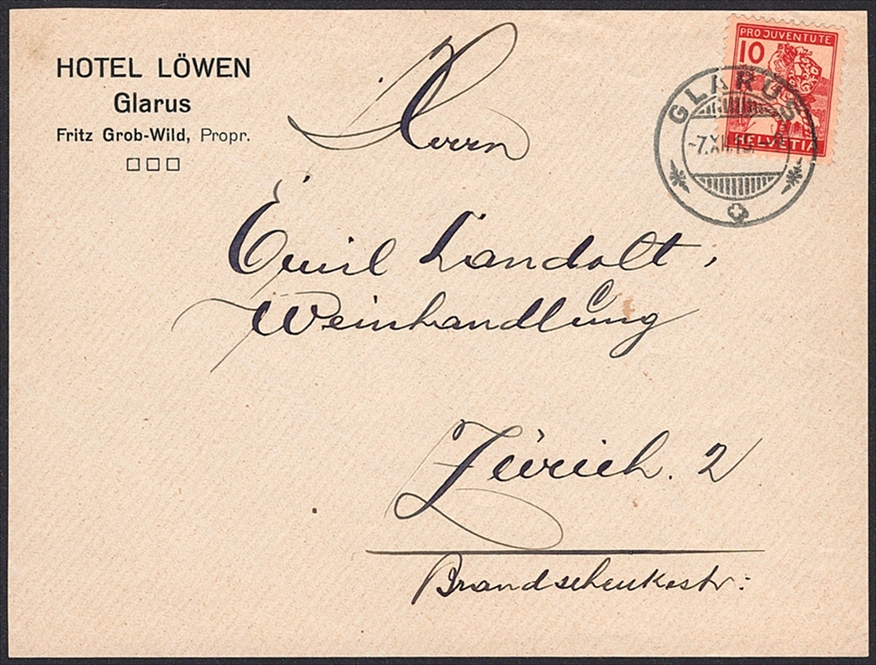 HOTEL LÖWEN
Glarus
Fritz Grob-Wild, Propr.
Herrn
Emil Landolt,
Weinhandlung
Zürich. 2
Brandschenkestr:
PRO JUVENTUTE
10
HELVETIA
GLARUS
-7.XII.15.